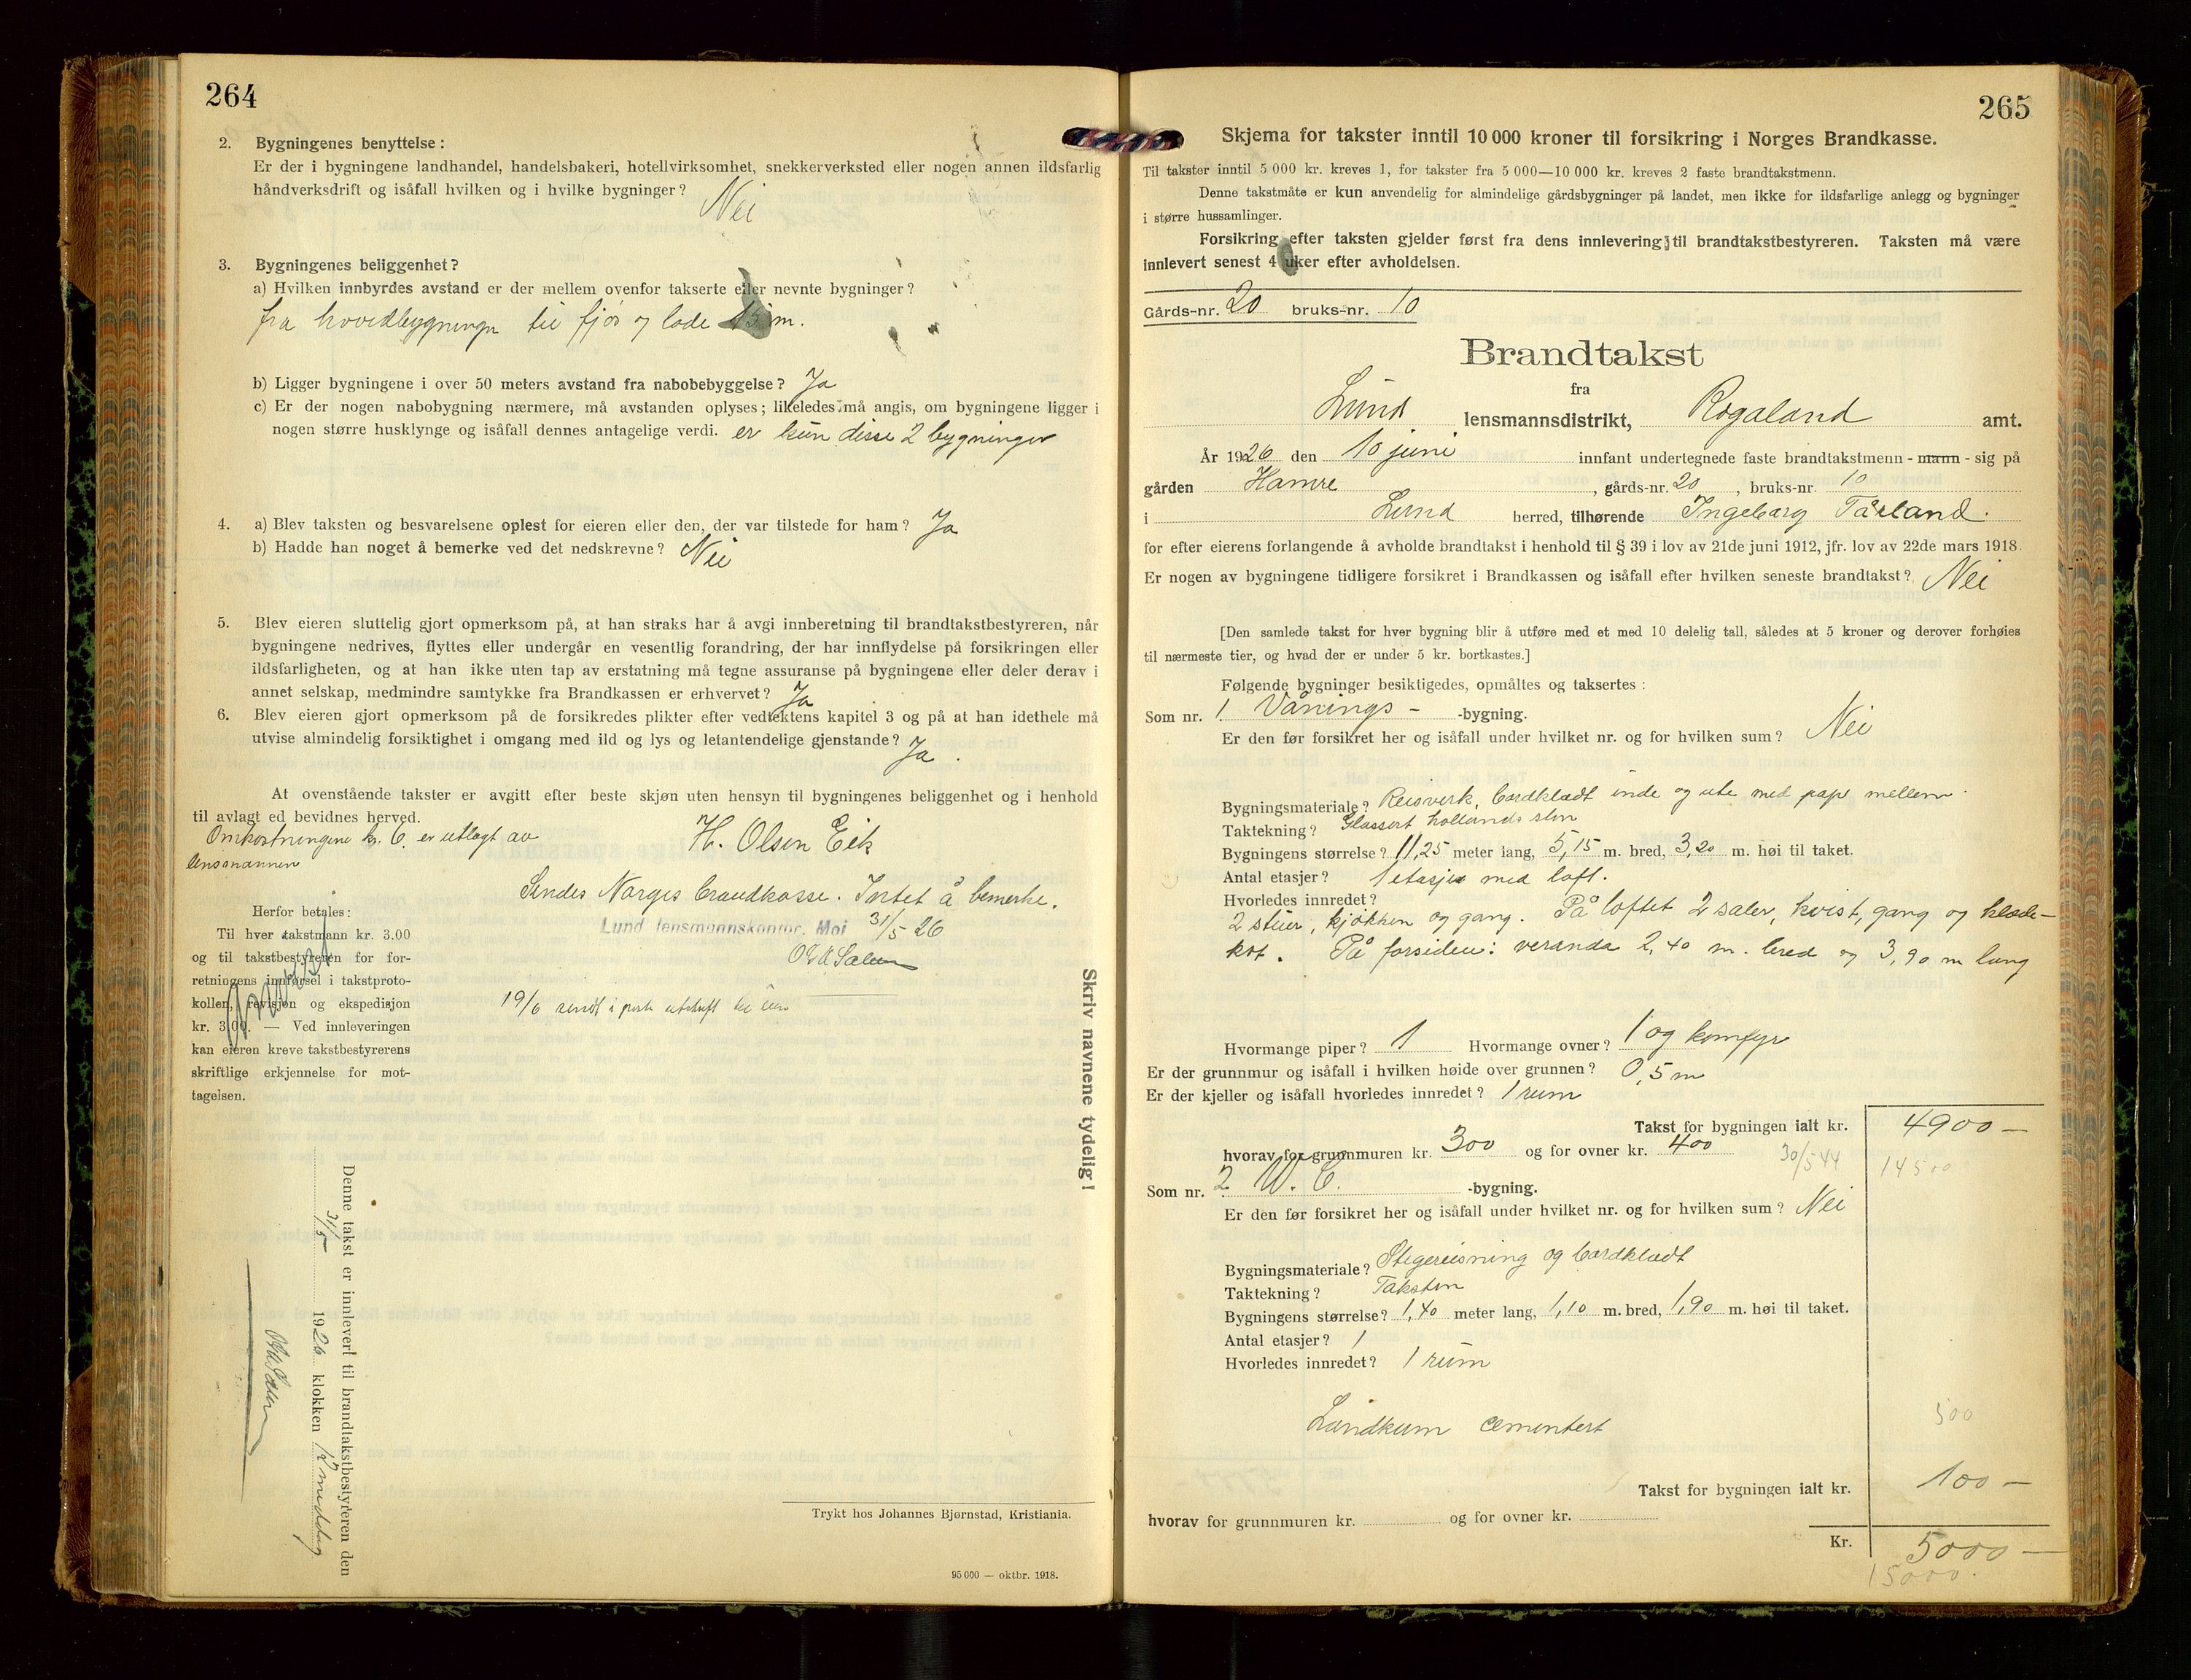 264
2. Bygningenes benyttelse:
Er der i bygningene landhandel, handelsbakeri, hotellvirksomhet, snekkerverksted eller nogen annen ildsfarlig
håndverksdrift og isåfall hvilken og i hvilke bygninger? Nei
3. Bygningenes beliggenhet?
a) Hvilken innbyrdes avstand er der mellem ovenfor takserte eller nevnte bygninger?
fra hovedbygningn til fjøs og lade 15 m.
b) Ligger bygningene i over 50 meters avstand fra nabobebyggelse? Ja
c) Er der nogen nabobygning nærmere, må avstanden oplyses; likeledes må angis, om bygningene ligger i
nogen større husklynge og isåfall dennes antagelige verdi. er kun disse 2 bygninger
4. a) Blev taksten og besvarelsene oplest for eieren eller den, der var tilstede for ham? Ja
b) Hadde han noget å bemerke ved det nedskrevne? Nei
5. Blev eieren sluttelig gjort opmerksom på, at han straks har å avgi innberetning til brandtakstbestyreren, når
bygningene nedrives, flyttes eller undergår en vesentlig forandring, der har innflydelse på forsikringen eller
ildsfarligheten, og at han ikke uten tap av erstatning må tegne assuranse på bygningene eller deler derav i
annet selskap, medmindre samtykke fra Brandkassen er erhvervet? Ja
6. Blev eieren gjort opmerksom på de forsikredes plikter efter vedtektens kapitel 3 og på at han idethele må
utvise almindelig forsiktighet i omgang med ild og lys og letantendelige gjenstande? Ja.
At ovenstående takster er avgitt efter beste skjøn uten hensyn til bygningenes beliggenhet og i henhold
til avlagt ed bevidnes herved.
Omkostningene kr. 6. er utlagt av
lensmannen
H. Olsen Eik
Sendes Norges brandkasse. Intet å bemerke.
Lund lensmannskontor, Moi 31/5 26
Herfor betales:
Til hver takstmann kr. 3.00
og til takstbestyreren for for-
retningens innførsel i takstproto-
kollen, revisjon og ekspedisjon
kr. 3.00. — Ved innleveringen
kan eieren kreve takstbestyrerens
skriftlige erkjennelse for mot-
tagelsen.
19/6 sendt i post utskrift
Skriv navnene tydelig!
Denne takst er innlevert til brandtakstbestyreren den
31/5 1926 klokken 12 middag
Trykt hos Johannes Bjørnstad, Kristiania.
95 000 — oktbr. 1918.
265
Skjema for takster inntil 10 000 kroner til forsikring i Norges Brandkasse.
Til takster inntil 5 000 kr. kreves 1, for takster fra 5 000—10 000 kr. kreves 2 faste brandtakstmenn.
Denne takstmåte er kun anvendelig for almindelige gårdsbygninger på landet, men ikke for ildsfarlige anlegg og bygninger
i større hussamlinger.
Forsikring efter taksten gjelder først fra dens innlevering til brandtakstbestyreren. Taksten må være
innlevert senest 4 uker efter avholdelsen.
Gårds-nr. 20 bruks-nr. 10
Brandtakst
fra
Lund lensmannsdistrikt, Rogaland amt.
År 1926 den 10 juni innfant undertegnede faste brandtakstmenn - mann - sig på
gården Hamre, gårds-nr. 20, bruks-nr. 10
i Lund herred, tilhørende Ingeborg Tårland.
for efter eierens forlangende å avholde brandtakst i henhold til § 39 i lov av 21de juni 1912, jfr. lov av 22de mars 1918.
Er nogen av bygningene tidligere forsikret i Brandkassen og isåfall efter hvilken seneste brandtakst? Nei
[Den samlede takst for hver bygning blir å utføre med et med 10 delelig tall, således at 5 kroner og derover forhøies
til nærmeste tier, og hvad der er under 5 kr. bortkastes.]
Følgende bygninger besiktigedes, opmåltes og taksertes:
Som nr. 1 Vånings- -bygning.
Er den før forsikret her og isåfall under hvilket nr. og for hvilken sum? Nei
Bygningsmateriale? Reisverk, bordklædt inde og ute med pap mellem.
Taktekning? Glassert hollands sten
Bygningens størrelse? 11,25 meter lang, 5,15 m. bred, 3,20 m. høi til taket.
Antal etasjer? 1 etasje med loft.
Hvorledes innredet?
2 stuer, kjøkken og gang. På loftet 2 saler, kvist, gang og klæde-
kot. På forsiden: veranda 2,40 m. bred og 3,90 m lang
Hvormange piper? 1 Hvormange ovner? 1 og komfyr
Er der grunnmur og isåfall i hvilken høide over grunnen? 0,5 m
Er der kjeller og isåfall hvorledes innredet? 1 rum
Takst for bygningen ialt kr. 4900 —
hvorav for grunnmuren kr. 300 og for ovner kr. 400 30/5 44 14500
Som nr. 2 W. C. -bygning.
Er den før forsikret her og isåfall under hvilket nr. og for hvilken sum? Nei
Bygningsmateriale? Stegereisning og bordklædt
Taktekning? Taksten
Bygningens størrelse? 1,40 meter lang, 1,10 m. bred, 1,90 m. høi til taket.
Antal etasjer? 1
Hvorledes innredet? 1 rum
Landkum cementert 500
Takst for bygningen ialt kr. 100 —
hvorav for grunnmuren kr. og for ovner kr.
Kr. 5000 —
15000.